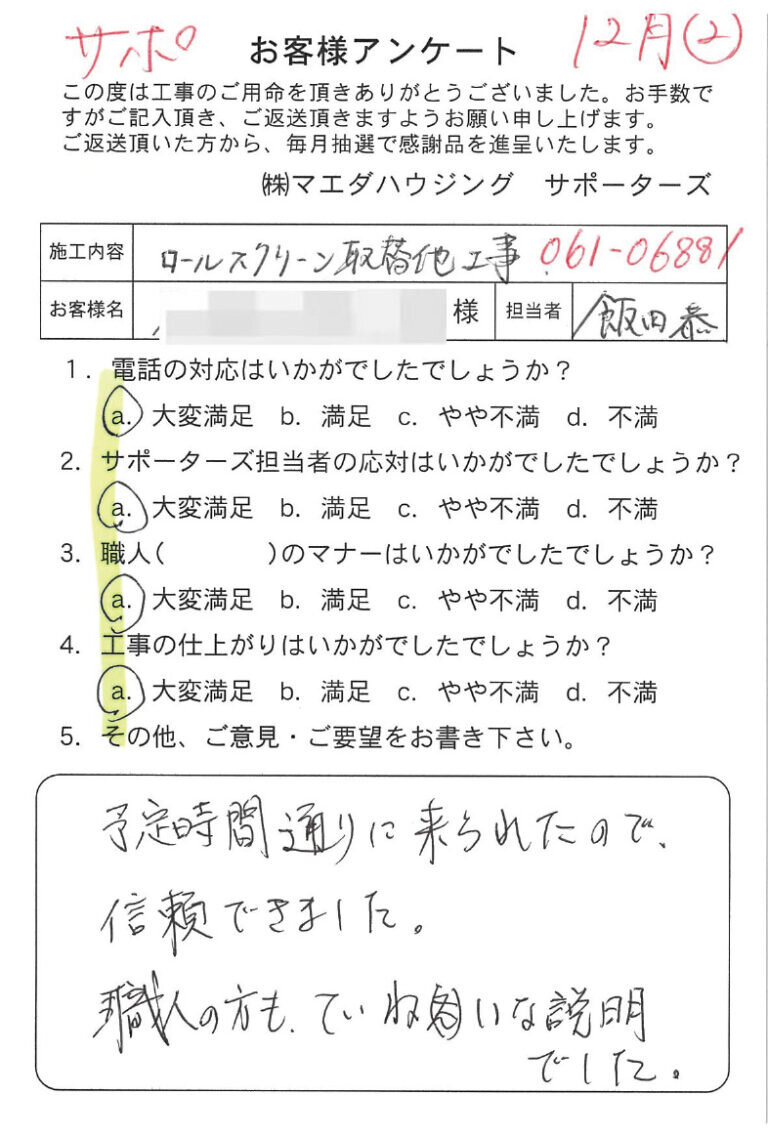 サポ お客様アンケート 12月(2)
この度は工事のご用命を頂きありがとうございました。お手数で
すがご記入頂き、ご返送頂きますようお願い申し上げます。
ご返送頂いた方から、毎月抽選で感謝品を進呈いたします。
㈱マエダハウジング サポーターズ
施工内容 ロールスクリーン取替他工事 061-06881
お客様名 様 担当者 飯田恭
1. 電話の対応はいかがでしたでしょうか?
a. 大変満足 b. 満足 c. やや不満 d. 不満
2. サポーターズ担当者の応対はいかがでしたでしょうか?
a. 大変満足 b. 満足 c. やや不満 d. 不満
3. 職人( )のマナーはいかがでしたでしょうか?
a. 大変満足 b. 満足 c. やや不満 d. 不満
4. 工事の仕上がりはいかがでしたでしょうか?
a. 大変満足 b. 満足 c. やや不満 d. 不満
5. その他、ご意見・ご要望をお書き下さい。
予定時間通りに来られたので、
信頼できました。
職人の方も、ていねいな説明
でした。